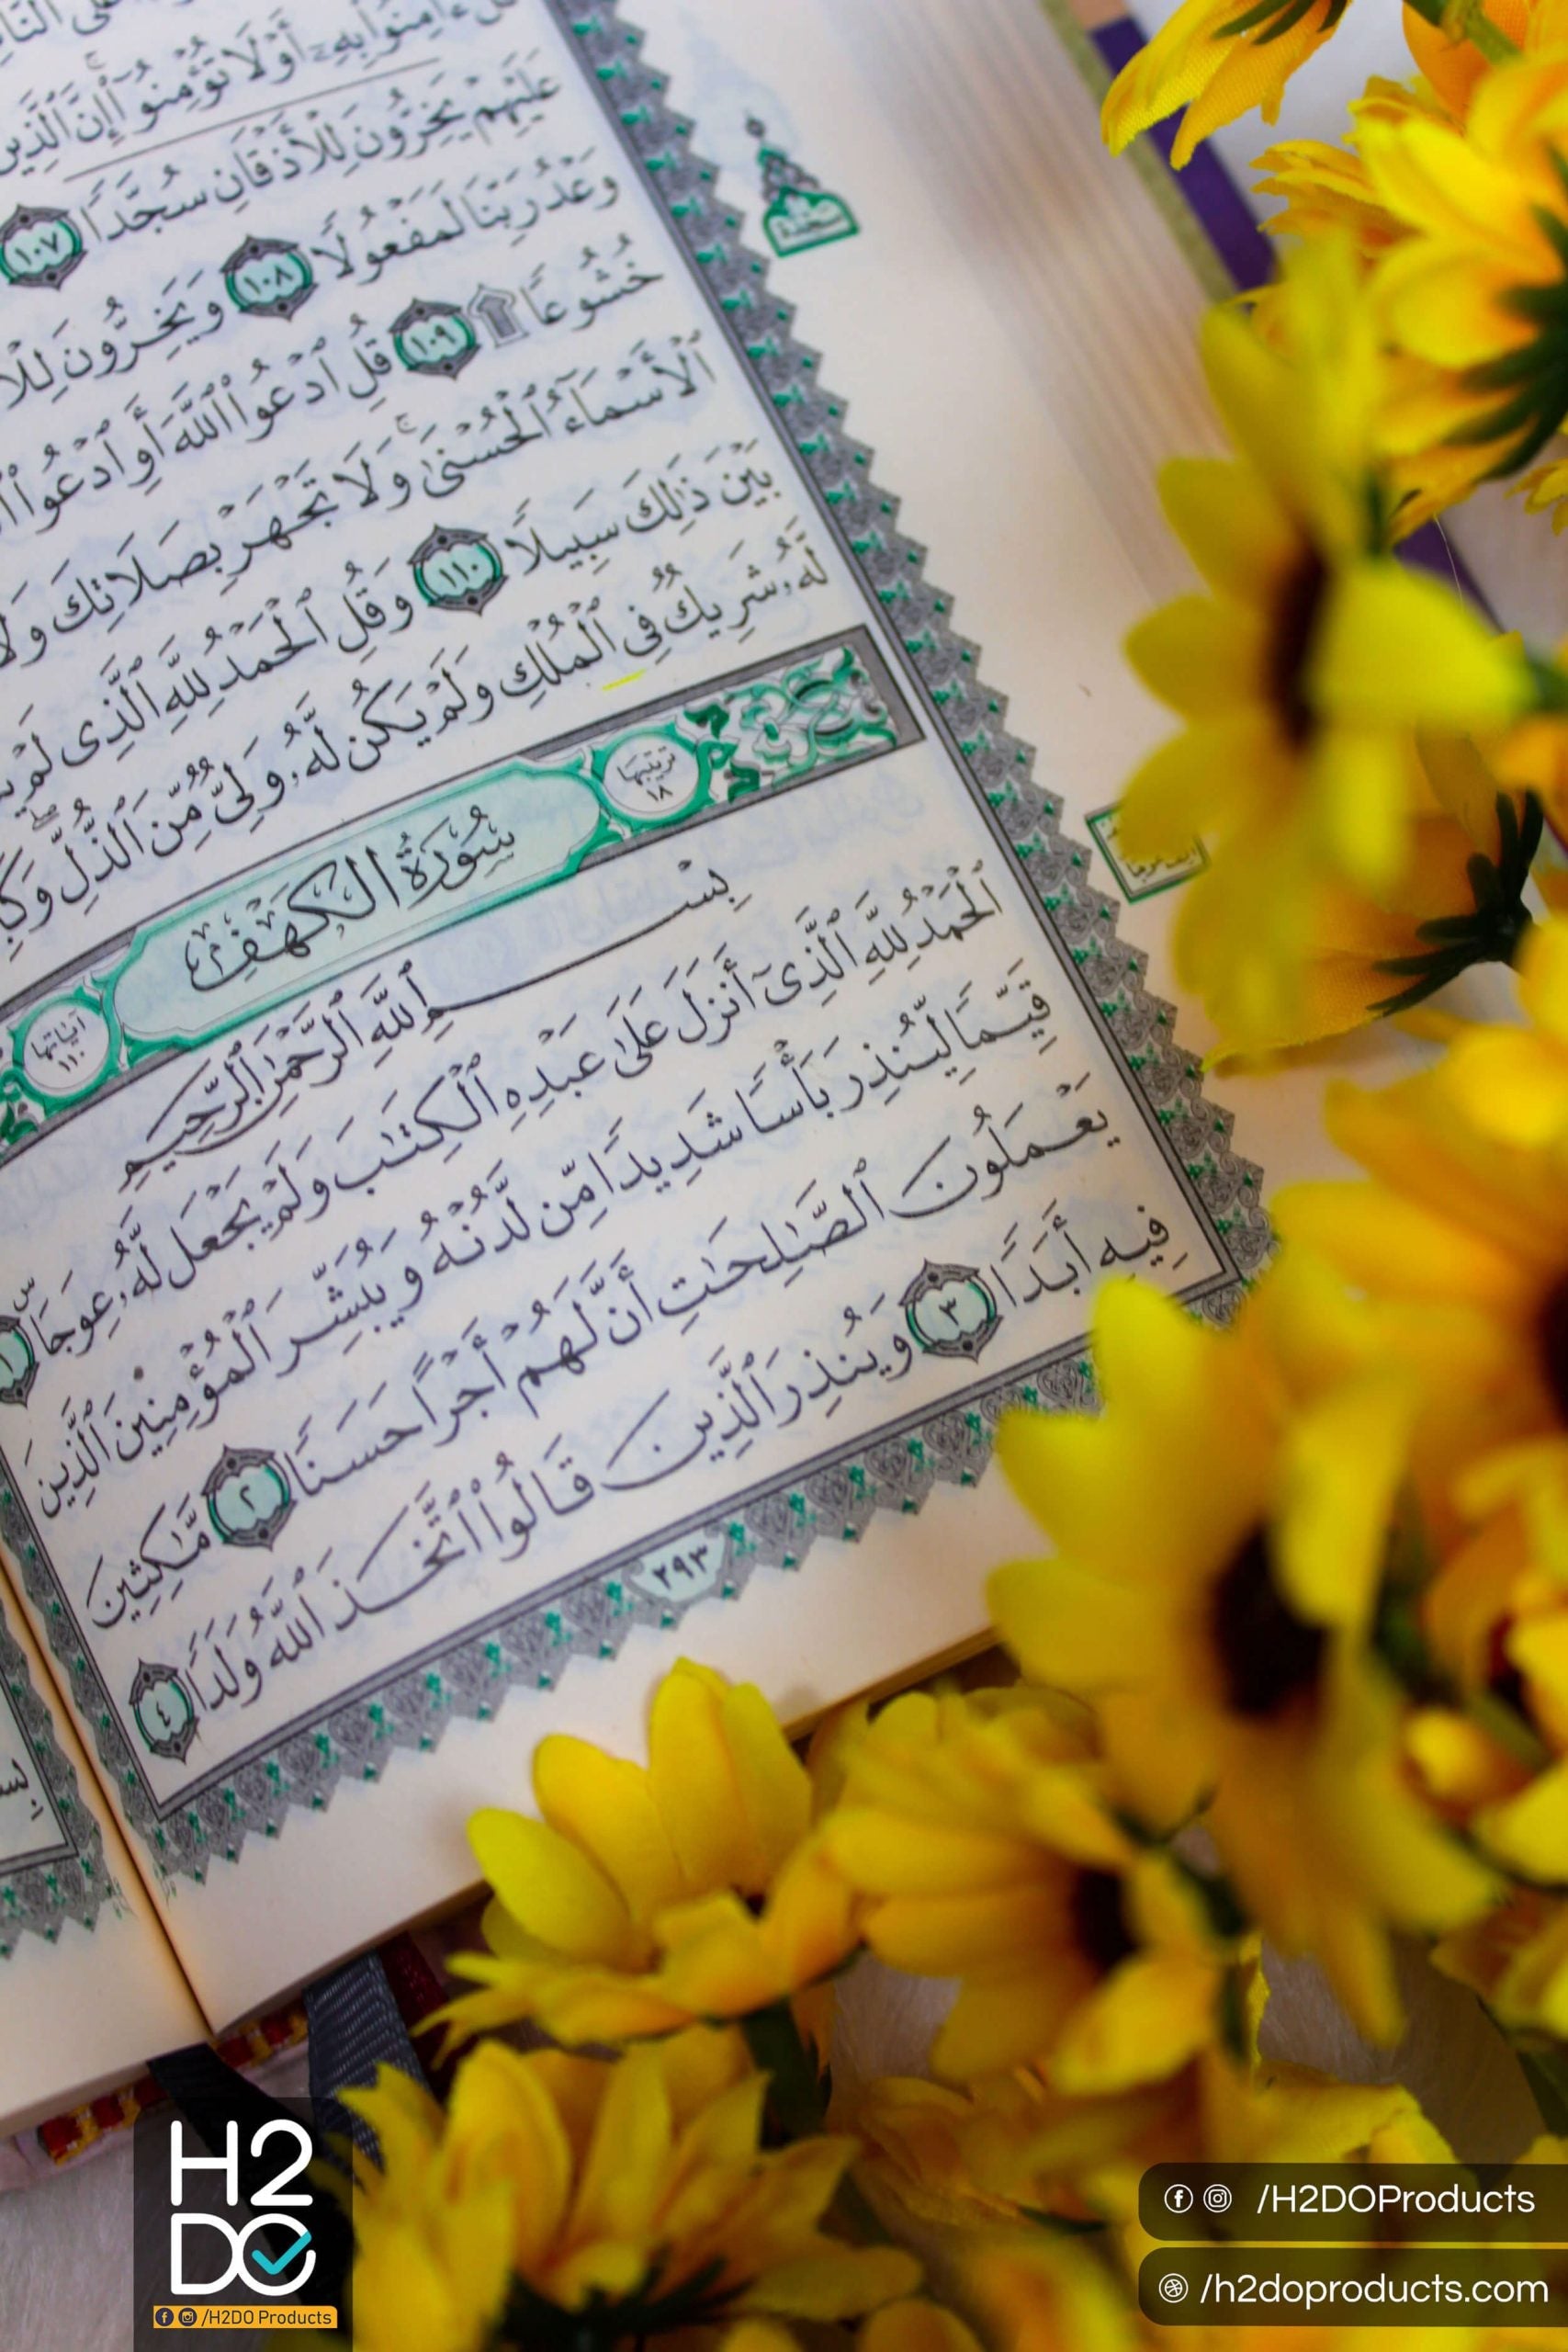 ءَامِنُوا۟ بِهِۦٓ أَوْ لَا تُؤْمِنُوٓا۟ ۚ إِنَّ ٱلَّذِينَ
عَلَيْهِمْ يَخِرُّونَ لِلْأَذْقَانِ سُجَّدًا ١٠٧
وَعْدُ رَبِّنَا لَمَفْعُولًا ١٠٨ وَيَخِرُّونَ
خُشُوعًا ۩ ١٠٩ قُلِ ٱدْعُوا۟ ٱللَّهَ أَوِ ٱدْعُوا۟
ٱلْأَسْمَآءُ ٱلْحُسْنَىٰ ۚ وَلَا تَجْهَرْ بِصَلَاتِكَ وَلَا
بَيْنَ ذَٰلِكَ سَبِيلًا ١١٠ وَقُلِ ٱلْحَمْدُ لِلَّهِ ٱلَّذِى لَمْ
لَّهُۥ شَرِيكٌ فِى ٱلْمُلْكِ وَلَمْ يَكُن لَّهُۥ وَلِىٌّ مِّنَ ٱلذُّلِّ ۖ
سجدة
ترتيبها ١٨
سُورَةُ الكَهْفِ
آياتها ١١٠
بِسْمِ ٱللَّهِ ٱلرَّحْمَٰنِ ٱلرَّحِيمِ
ٱلْحَمْدُ لِلَّهِ ٱلَّذِىٓ أَنزَلَ عَلَىٰ عَبْدِهِ ٱلْكِتَٰبَ وَلَمْ يَجْعَل لَّهُۥ عِوَجَا ۜ ١
قَيِّمًا لِّيُنذِرَ بَأْسًا شَدِيدًا مِّن لَّدُنْهُ وَيُبَشِّرَ ٱلْمُؤْمِنِينَ ٱلَّذِينَ
يَعْمَلُونَ ٱلصَّٰلِحَٰتِ أَنَّ لَهُمْ أَجْرًا حَسَنًا ٢ مَّٰكِثِينَ
فِيهِ أَبَدًا ٣ وَيُنذِرَ ٱلَّذِينَ قَالُوا۟ ٱتَّخَذَ ٱللَّهُ وَلَدًا ٤
٢٩٣
H2
DO
/H2DO Products
/H2DOProducts
/h2doproducts.com